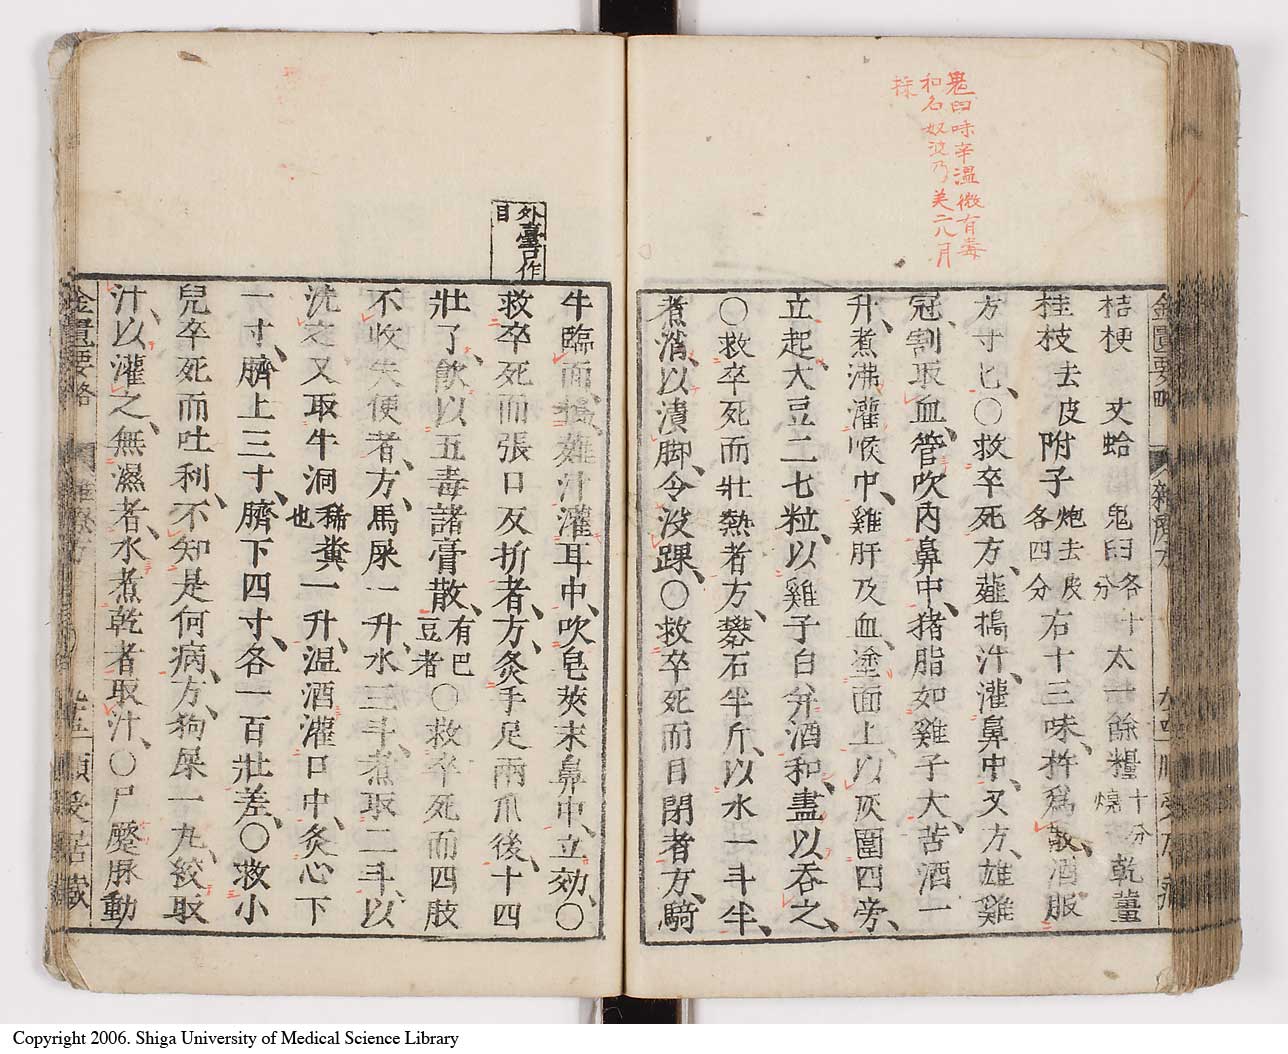 鬼臼味辛温微有毒
和名奴波乃美二八月
採
桔梗　文蛤　鬼臼各十分　太一餘糧十分燒　乾薑
桂枝去皮　附子炮去皮各四分　右十三味、杵爲散、酒服
方寸匕、〇救卒死方、薤搗汁、灌鼻中、又方、雄雞
冠、割取血、管吹內鼻中、猪脂如雞子大、苦酒一
升、煮沸灌喉中、雞肝及血、塗面上、以灰圍四旁、
立起、大豆二七粒、以雞子白并酒和、盡以呑之、
〇救卒死而壯熱者方、礬石半斤、以水一斗半、
煮消、以漬脚、令没踝、〇救卒死而目閉者方、騎
外臺口作
目
牛臨面、搗薤汁灌耳中、吹皂莢末鼻中、立効、〇
救卒死而張口反折者、方、灸手足兩爪後、十四
壯了、飲以五毒諸膏散、有巴豆者〇救卒死而四肢
不收失便者、方、馬屎一升、水三斗、煮取二斗、以
洗之又取牛洞稀糞也一升、温酒灌口中、灸心下
一寸、臍上三寸、臍下四寸、各一百壯、差、〇救小
兒卒死而吐利、不知是何病、方、狗屎一丸、絞取
汁、以灌之、無濕者、水煮乾者取汁、〇尸蹷脉動
金匱要略